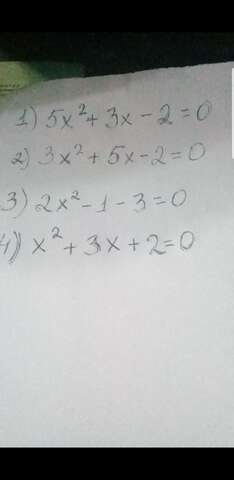 1) 5x²+3x-2=0
2) 3x²+5x-2=0
3) 2x²-1-3=0
4) x²+3x+2=0